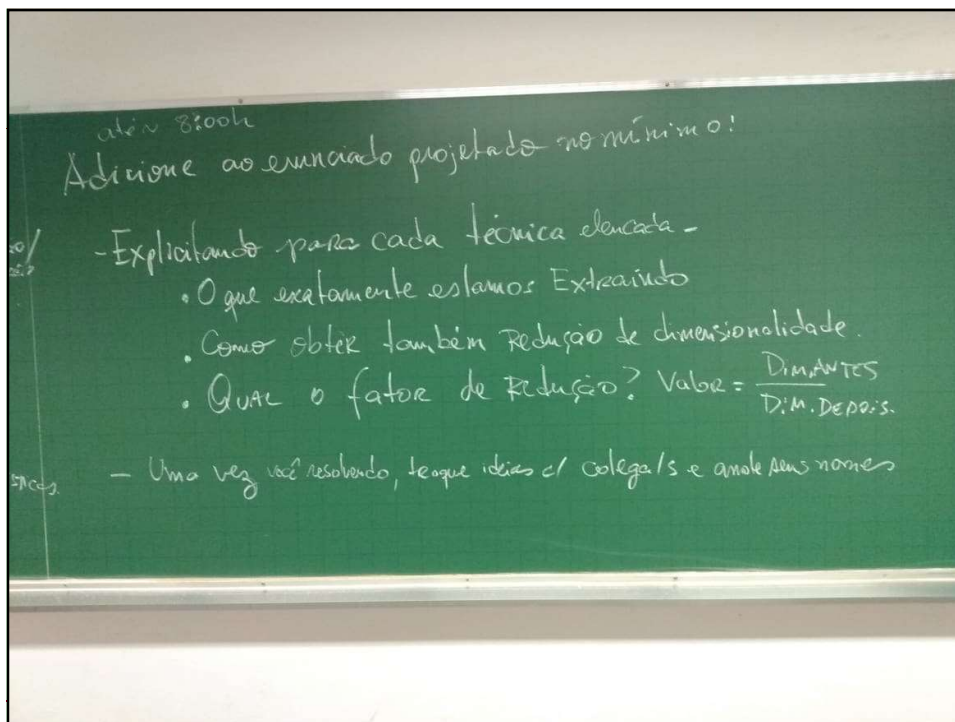 até 8:00h
Adicione ao enunciado projetado no mínimo:
- Explicitando para cada técnica elencada -
• O que exatamente estamos Extraindo
• Como obter também Redução de dimensionalidade.
• QUAL o fator de Redução? Valor = DIM.ANTES
DIM. DEPOIS.
- Uma vez você resolvendo, troque ideias c/ colega/s e anote seus nomes